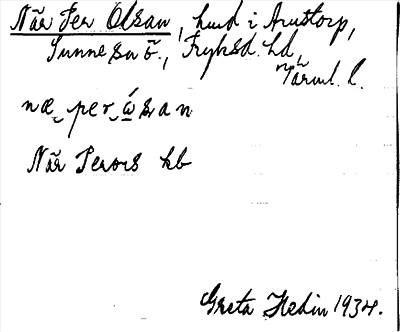 När Per Olsan, hmd i Arnstorp,
Sunne sn ö., Fryksd. hd,
Värml. l.
næ‿per‿ώsan
När Perors kb
Greta Hedin 1934.